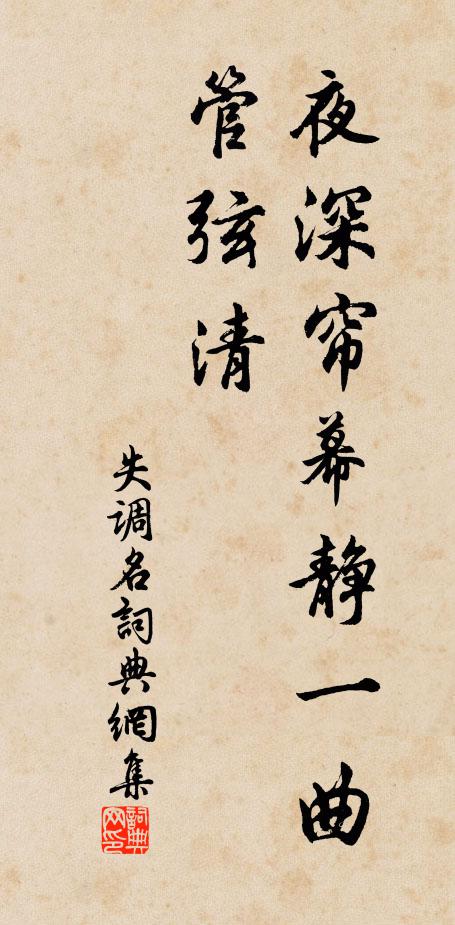 夜深帘幕静一曲
管弦清
失调名詞典網集
詞典
网印